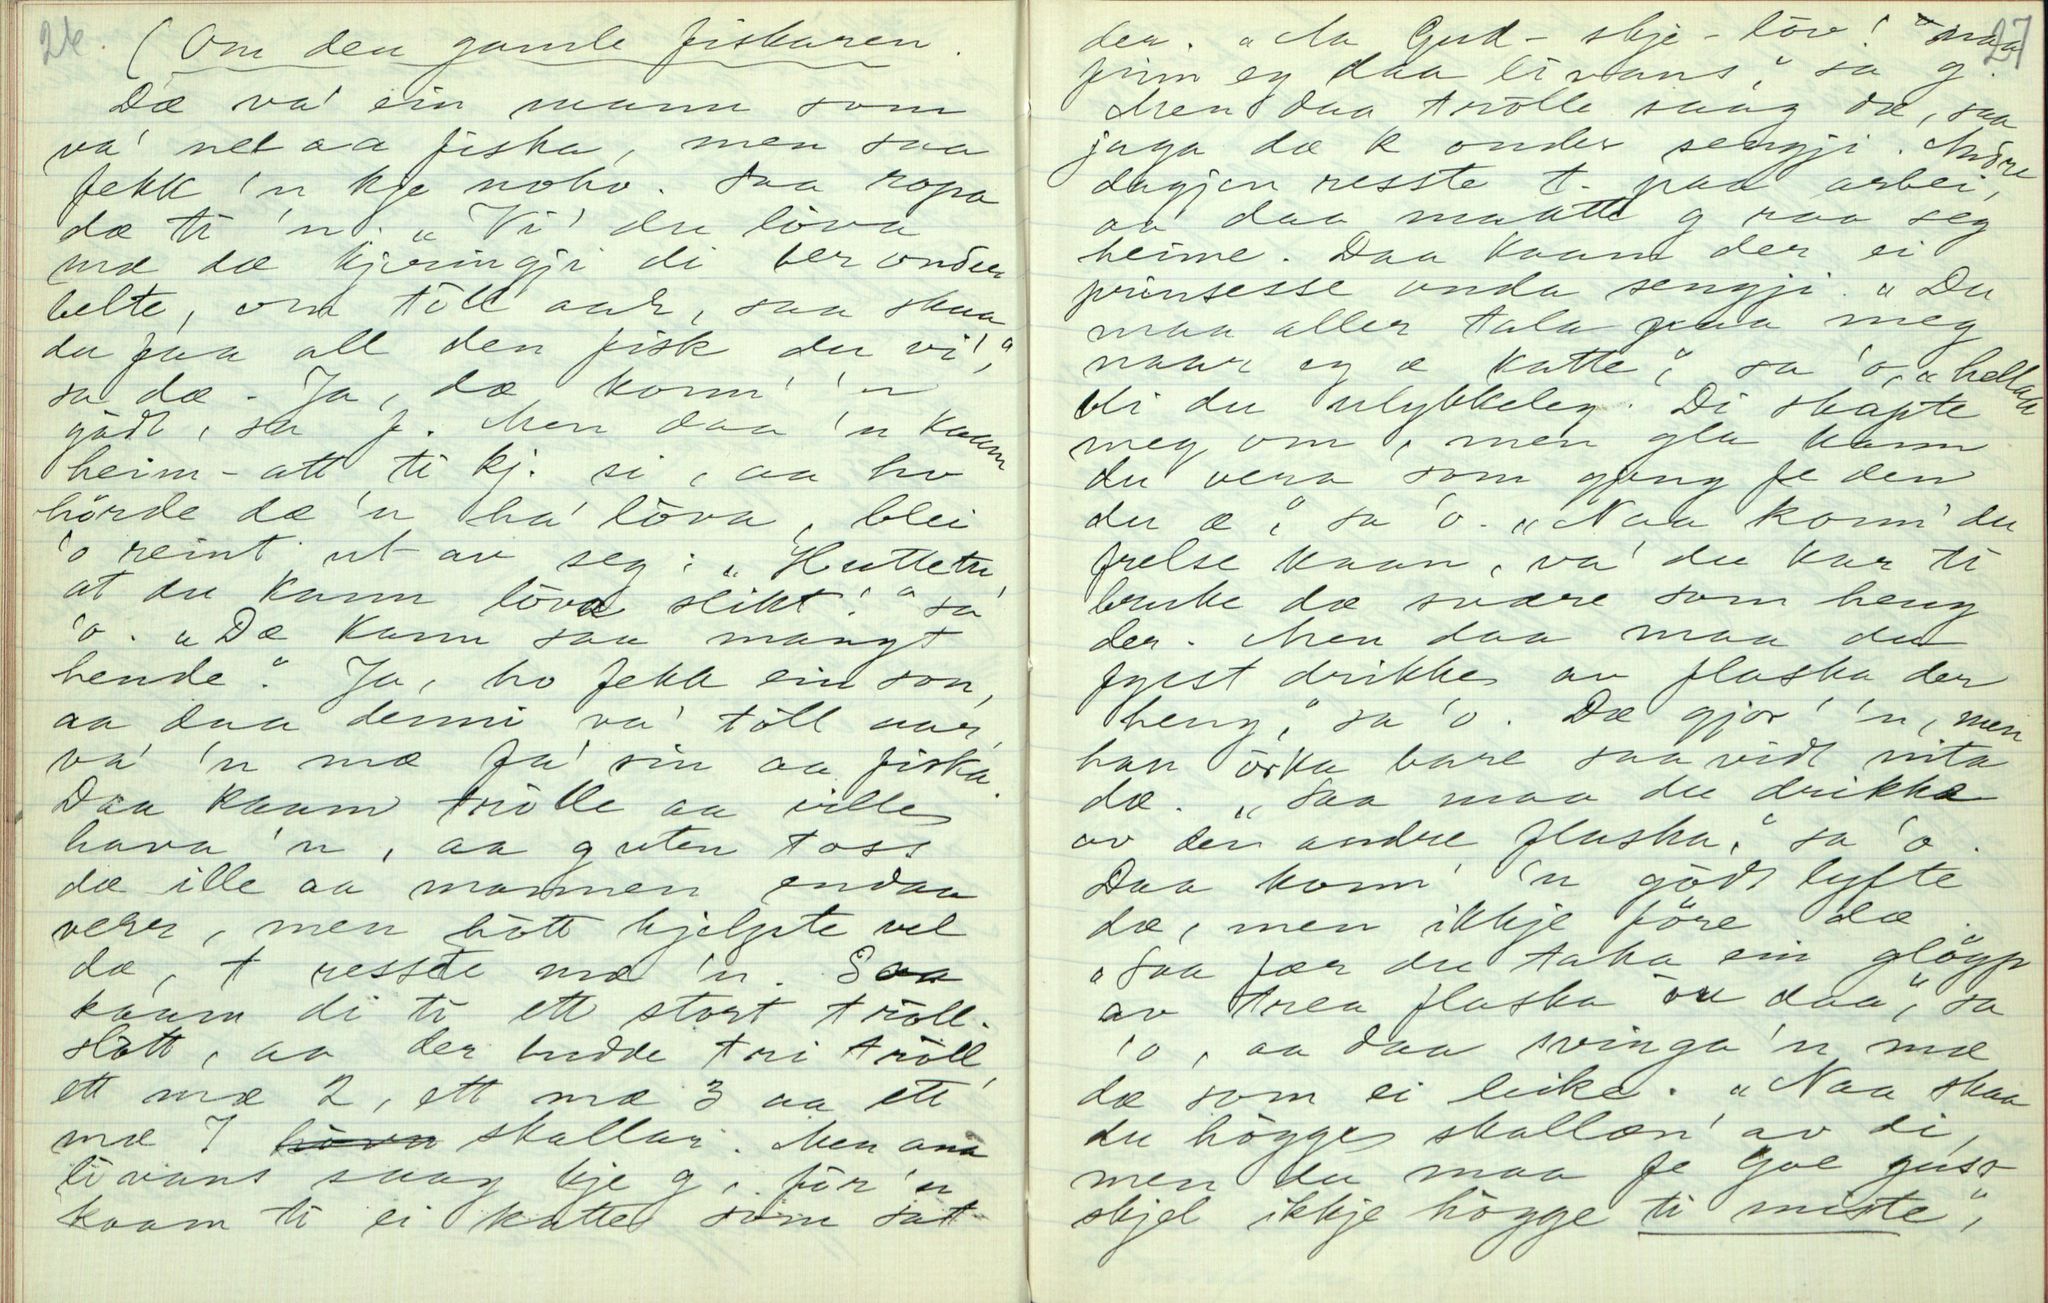 26.
(Om den gamle fiskaren.
Dæ va' ein mann som
va' ne aa fiska, men saa
fekk 'n kje noko. Saa ropa
dæ ti 'n. „Vi' du lòva
mæ dæ kjeringji di ber onder
belte, om tòll aar, saa skaa
du faa all den fisk du vi',"
sa dæ. Ja, dæ konn' 'n
gòdt, sa f. Men daa 'n kaam
heim-att ti kj. si, aa ho
hörde dæ 'n ha' lòva, blei
'o reint ut av seg: „Huttetu,
at du kunn lòva slikt!" sa
'o. „Dæ kann saa mangt
hende". Ja, ho fekk ein son,
aa daa denni va' tòll aar,
va' 'n mæ fa' sin aa fiska.
Daa kaam tròlle aa ville
hava 'n, aa guten toss
dæ ille aa mannen endaa
verr, men hòtt hjelpte vel
dæ, t resste mæ 'n. Saa
kaam di ti ett stort tròll-
slòtt, aa der budde tri tròll,
ett mæ 2, ett mæ 3 aa ett
mæ 7 skallar. Men ana
livans saag kje g, för 'n
kaam ti ei katte som sat
27
der. „Na Gud-skje-lòv! naa
finn eg daa livans," sa g.
Men daa tròlle saag dæ, saa
jaga dæ k onder sengji. Andre
dagjen resste t. paa arbei,
aa daa maatte g raa seg
heime. Daa kaam der ei
prinsesse onda sengji. „Du
maa aller tala paa meg
naar eg æ katte," sa 'o, „hellah
bli du ulykkeleg. Di skapte
meg om, men gla kann
du vera som gjeng fe den
du æ," sa 'o. „Naa konn' du
frelse kaan, va' du kar ti
bruke dæ svære som heng
der. Men daa maa du
fysst drikke av flaska der
heng," sa 'o. Dæ gjor' 'n, men
han òrka bare saavidt vita
dæ. „Saa maa du drikke
av den andre flaska," sa 'o.
Daa konn' 'n gòdt lyfte
dæ, men ikkje före dæ.
„Saa fær du taka ein glöyp
av trea flaska òu daa," sa
'o, aa daa svinga 'n mæ
dæ som ei leike. „Naa skaa
du högge skallæn' av di,
men du maa fe Gue guss-
skjel ikkje högge ti miste",